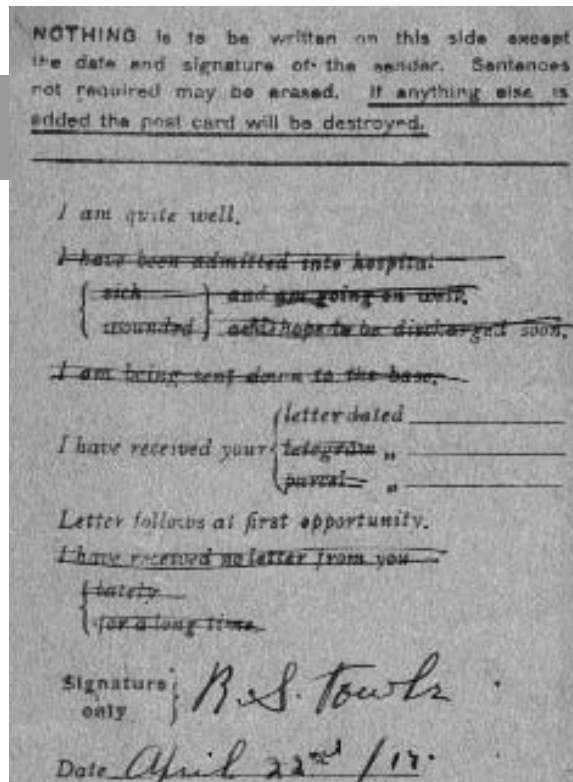 NOTHING is to be written on this side except
the date and signature of the sender. Sentences
not required may be erased. If anything else is
added the post card will be destroyed.
I am quite well.
I have been admitted into hospital
sick and am going on well.
wounded and hope to be discharged soon.
I am being sent down to the base.
letter dated
I have received your telegram „
parcel „
Letter follows at first opportunity.
I have received no letter from you
lately
for a long time.
Signature only R. S. Towle
Date April 22nd /17.